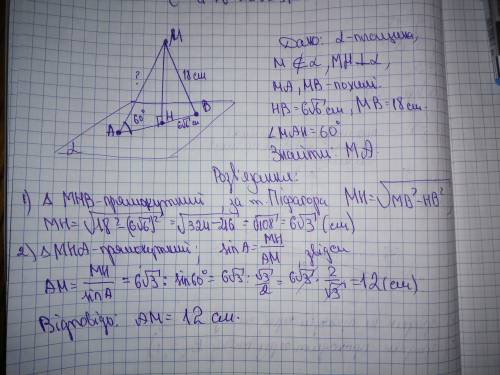 M
Дано: α-площина,
M ∉ α, MH ⊥ α,
MA, MB-похилі.
HB = 6√6 см, MB = 18 см.
∠MAH = 60°
Знайти: MA.
?
18 см
60°
A
H
B
6√6 см
α
Розв'язання:
1) Δ MHB-прямокутний, за т. Піфагора MH = √MB² - HB²
MH = √18² - (6√6)² = √324 - 216 = √108 = 6√3 (см)
2) Δ MHA-прямокутний; sin A = MH/AM, звідси
AM = MH/sin A = 6√3 : sin 60° = 6√3 : √3/2 = 6√3 · 2/√3 = 12 (см)
Відповідь: AM = 12 см.